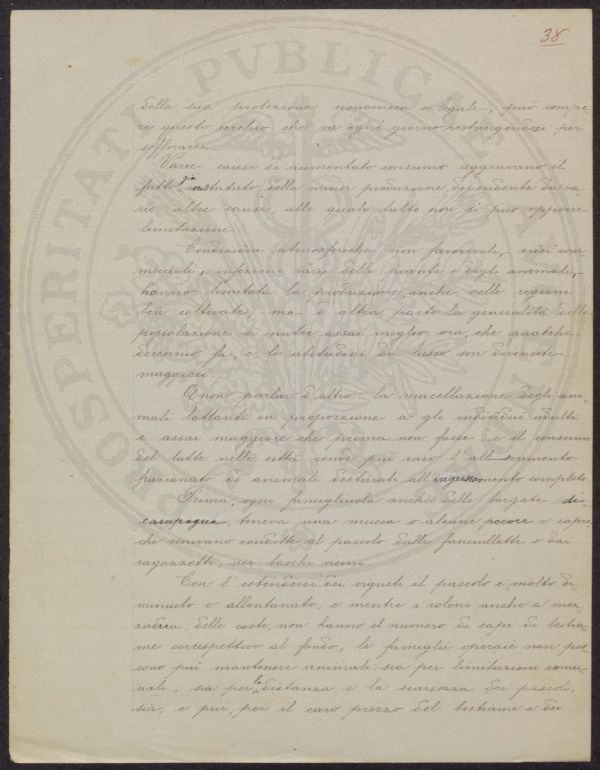 38
della sua protezione economica e legale, può rompe-
re questo cerchio che va ogni giorno restringendosi per
soffocarci.
Varie cause di aumentato consumo aggravano il
fatto già constatato della minor produzione, dipendente da va-
rie altre cause, alle quali tutte non si può opporre
limitazione.
Condizioni atmosferiche non favorevoli, crisi com-
merciali, infezioni varie delle piante e degli animali,
hanno limitata la produzione, anche nelle regioni
ben coltivate, ma d'altra parte la generalità della
popolazione si nutre assai meglio ora, che qualche
decennio fa, e le abitudini di lusso son divenute
maggiori.
A non parlar d'altro: la macellazione degli ani-
mali lattanti in proporzione a gli individui adulti
è assai maggiore che prima non fosse e il consumo
del latte nelle città rende più raro l'allevamento
frazionato di animali destinati all'ingrassamento completo.
Prima, ogni famigliuola anche delle borgate di
campagna, teneva una mucca o alcune pecore o capre
che venivano condotte al pascolo dalle fanciullette o dai
ragazzetti, nei boschi vicini.
Con l'estendersi dei vigneti, il pascolo è molto di-
minuito e allontanato, e mentre i coloni anche a mez-
zadria, delle coste, non hanno il numero di capi di bestia-
me corrispettivo al fondo, le famiglie operaie non pos-
sono più mantenere animali: sia per limitazioni comu-
nali, sia per la distanza e la scarsezza dei pascoli,
sia, e più, per il caro prezzo del bestiame e dei
PROSPERITATI PVBLICAE